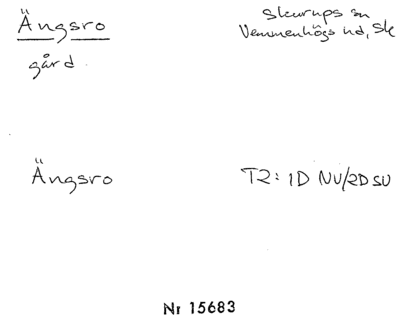 Ängsro
Skurups sn
Vemmenhögs hd, Sk
gård.
Ängsro
T2: 1D NV/2D SV
Nr 15683